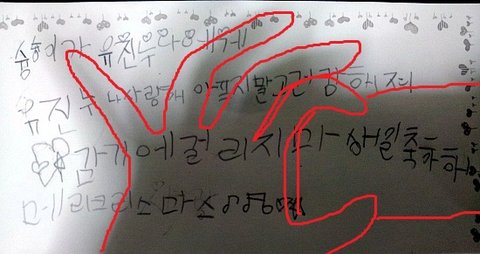 숭이가 유진누나에게
유진누나사랑해 아프지말고건강하져
감기에걸리지마 생일축하해
메리크리스마스